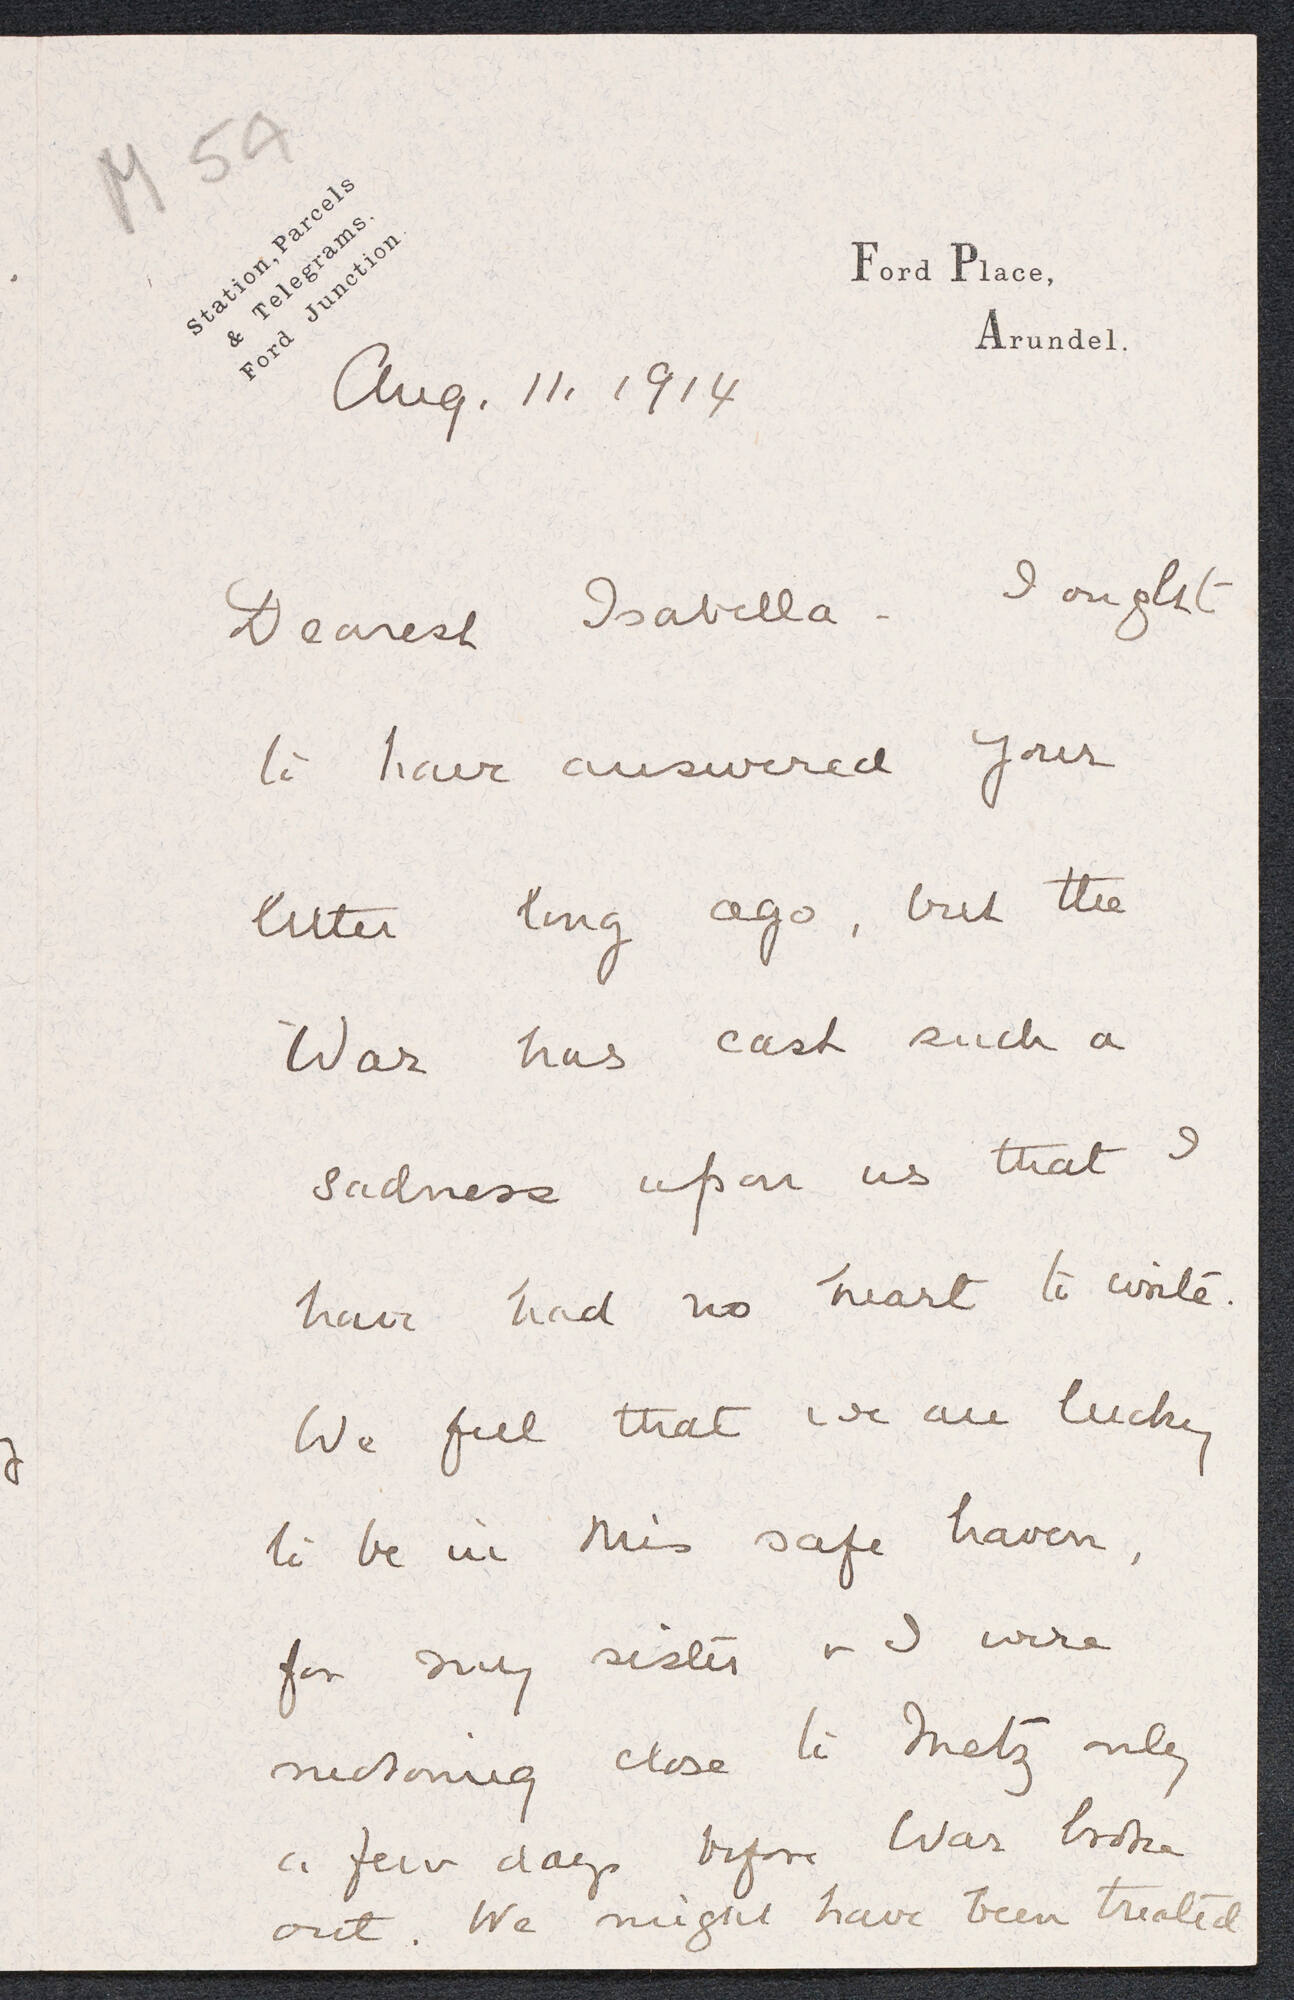 M 59
Station, Parcels
& Telegrams.
Ford Junction.
Ford Place,
Arundel.
Aug. 11, 1914
Dearest Isabella - I ought
to have answered your
letter long ago, but the
War has cast such a
sadness upon us that I
have had no heart to write.
We feel that we are lucky
to be in this safe haven,
for my sister & I were
motoring close to Metz only
a few days before War broke
out. We might have been treated